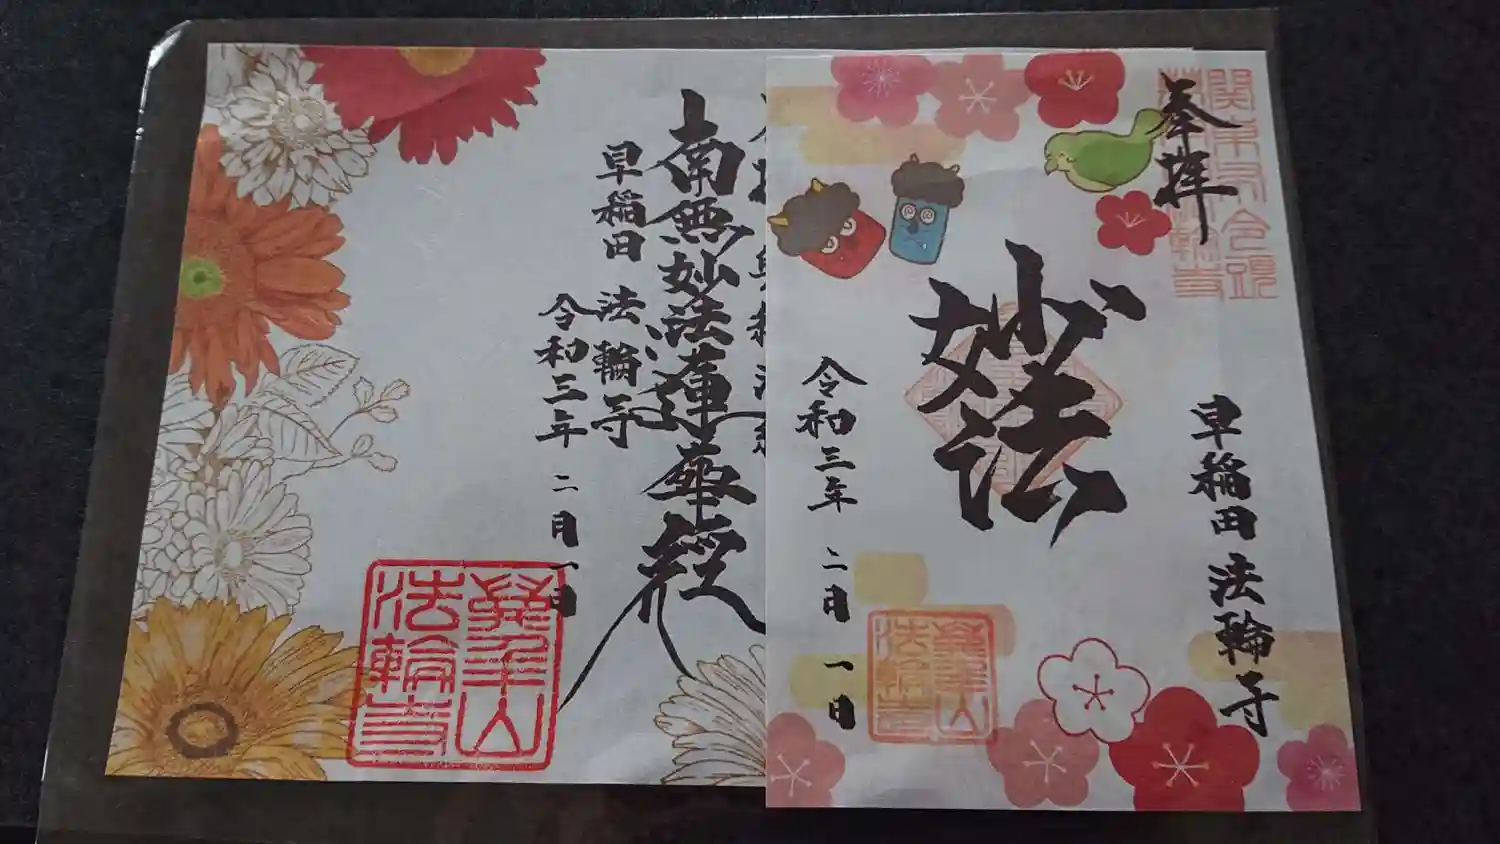 奉拝
妙法
早稲田 法輪寺
令和三年 二月 一日
南無妙法蓮華経
早稲田 法輪寺
令和三年 二月 一日
法輪寺
法輪寺